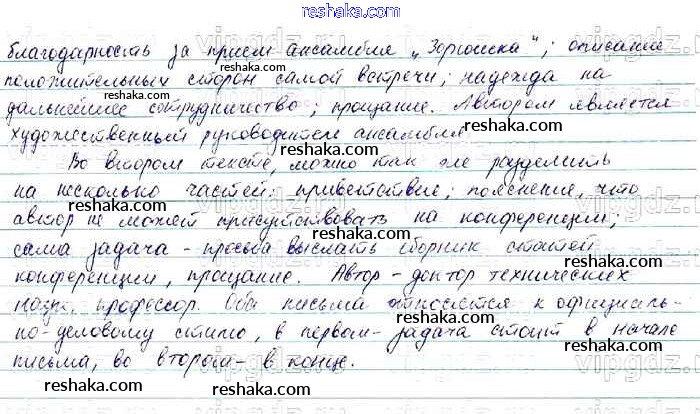 благодарность за прием ансамбля „Зорюшка"; описание
положительных сторон самой встречи; надежда на
дальнейшее сотрудничество; прощание. Автором является
художественный руководитель ансамбля
Во втором тексте, можно так же разделить
на несколько частей: приветствие; пояснение, что
автор не может присутствовать на конференции;
сама задача - просьба выслать сборник статей
конференции, прощание. Автор - доктор технических
наук, профессор. Оба письма относятся к официаль-
но-деловому стилю, в первом - задача стоит в начале
письма, во втором - в конце.
reshaka.com
reshaka.com
reshaka.com
reshaka.com
reshaka.com
reshaka.com
reshaka.com
reshaka.com
reshaka.com
reshaka.com
reshaka.com